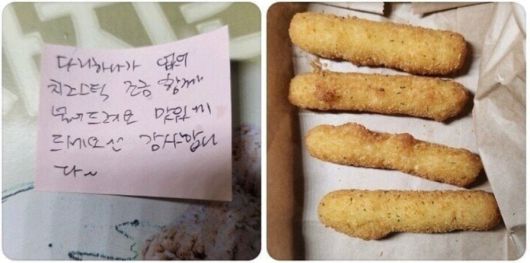 다리하나가 없어
치즈스틱 조금 함께
보내드려요 맛있게
드세요 감사합니
다~